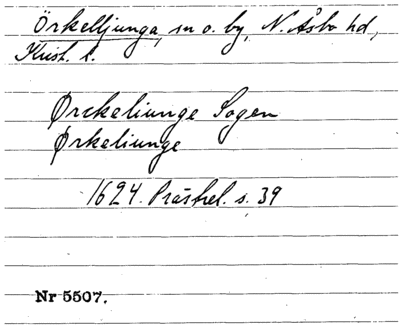 Örkelljunga, sn o. by, N. Åsbo hd,
Krist. l.
Ørckeliunge Sogen
Ørkeliunge
1624. Prästrel. s. 39
Nr 5507.